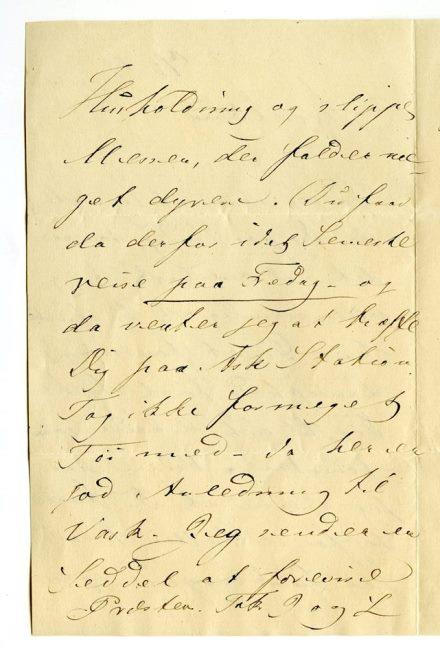 Husholdning og slippe
Messen, der falder me-
get dyrere. Du faar
da derfor idet seneste
reise paa Fredag - og
da venter jeg at træffe
Dig paa Ask Station.
Tag ikke formeget
Töi med - da her er
god Anledning til
Vask. Jeg sender en
Seddel at forevise
Præsten. Tak D og L